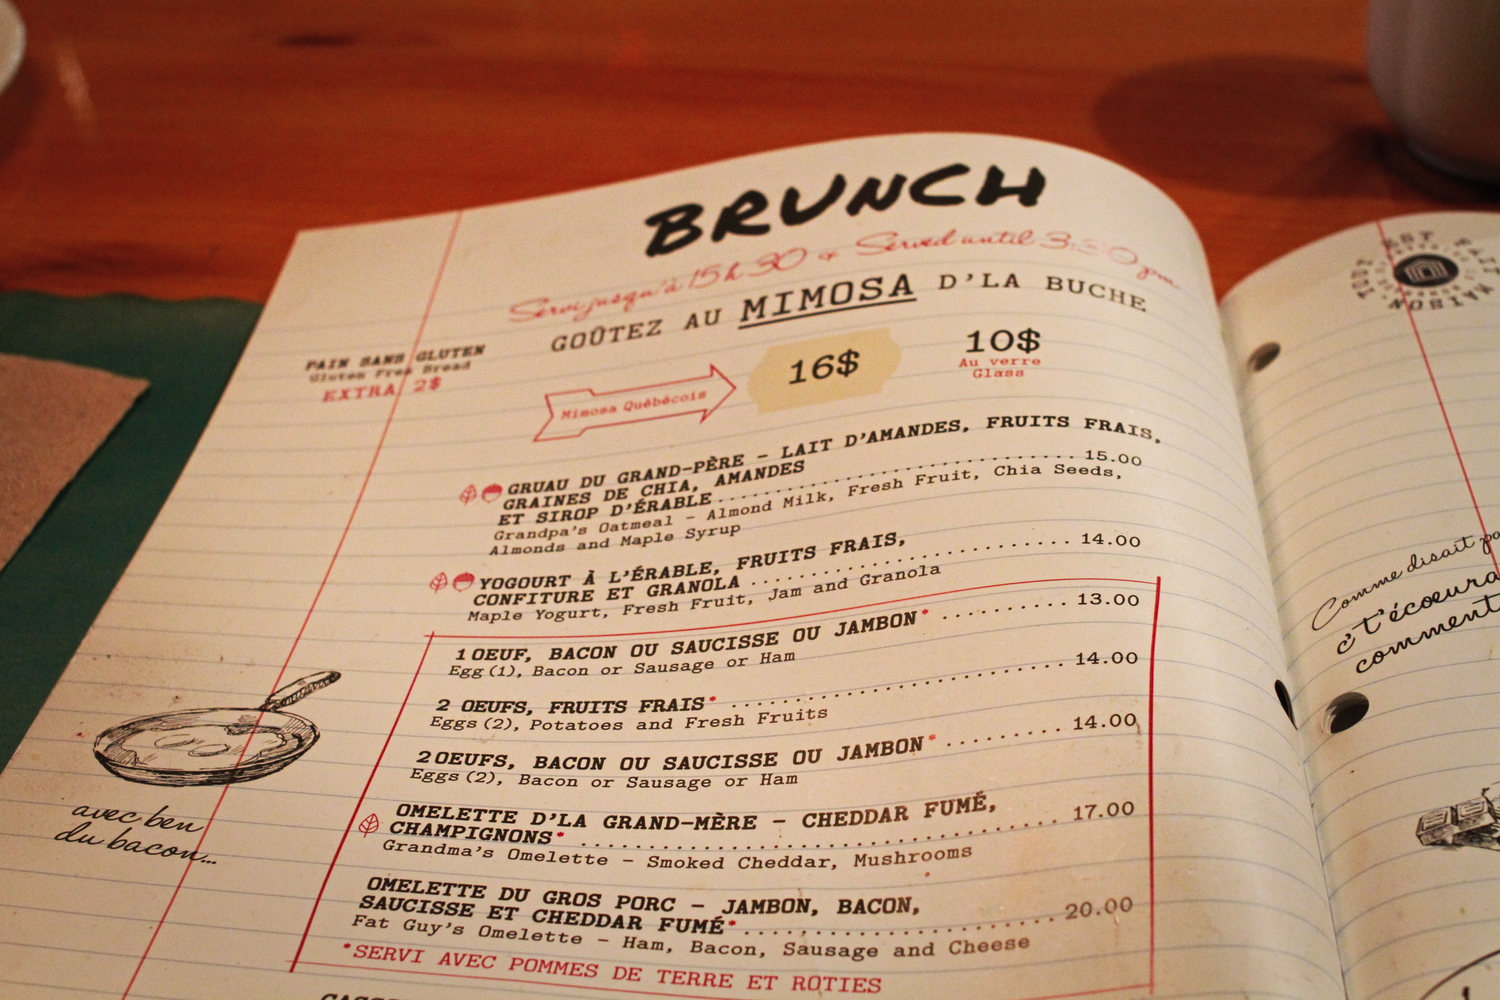 BRUNCH
Servi jusqu'à 15h30 & Served until 3:30 pm
GOÛTEZ AU MIMOSA D'LA BUCHE
PAIN SANS GLUTEN
Gluten Free Bread
EXTRA 2$
Mimosa Québécois
16$
10$
Au verre
Glass
GRUAU DU GRAND-PÈRE - LAIT D'AMANDES, FRUITS FRAIS,
GRAINES DE CHIA, AMANDES
ET SIROP D'ÉRABLE ........ 15.00
Grandpa's Oatmeal - Almond Milk, Fresh Fruit, Chia Seeds,
Almonds and Maple Syrup
YOGOURT À L'ÉRABLE, FRUITS FRAIS,
CONFITURE ET GRANOLA ........ 14.00
Maple Yogurt, Fresh Fruit, Jam and Granola
1 OEUF, BACON OU SAUCISSE OU JAMBON* ........ 13.00
Egg (1), Bacon or Sausage or Ham
2 OEUFS, FRUITS FRAIS* ........ 14.00
Eggs (2), Potatoes and Fresh Fruits
2 OEUFS, BACON OU SAUCISSE OU JAMBON* ........ 14.00
Eggs (2), Bacon or Sausage or Ham
OMELETTE D'LA GRAND-MÈRE - CHEDDAR FUMÉ,
CHAMPIGNONS* ........ 17.00
Grandma's Omelette - Smoked Cheddar, Mushrooms
OMELETTE DU GROS PORC - JAMBON, BACON,
SAUCISSE ET CHEDDAR FUMÉ* ........ 20.00
Fat Guy's Omelette - Ham, Bacon, Sausage and Cheese
*SERVI AVEC POMMES DE TERRE ET RÔTIES
avec ben
du bacon...
TOUT EST FAIT MAISON
Comme disait
c't'écoeura
comment